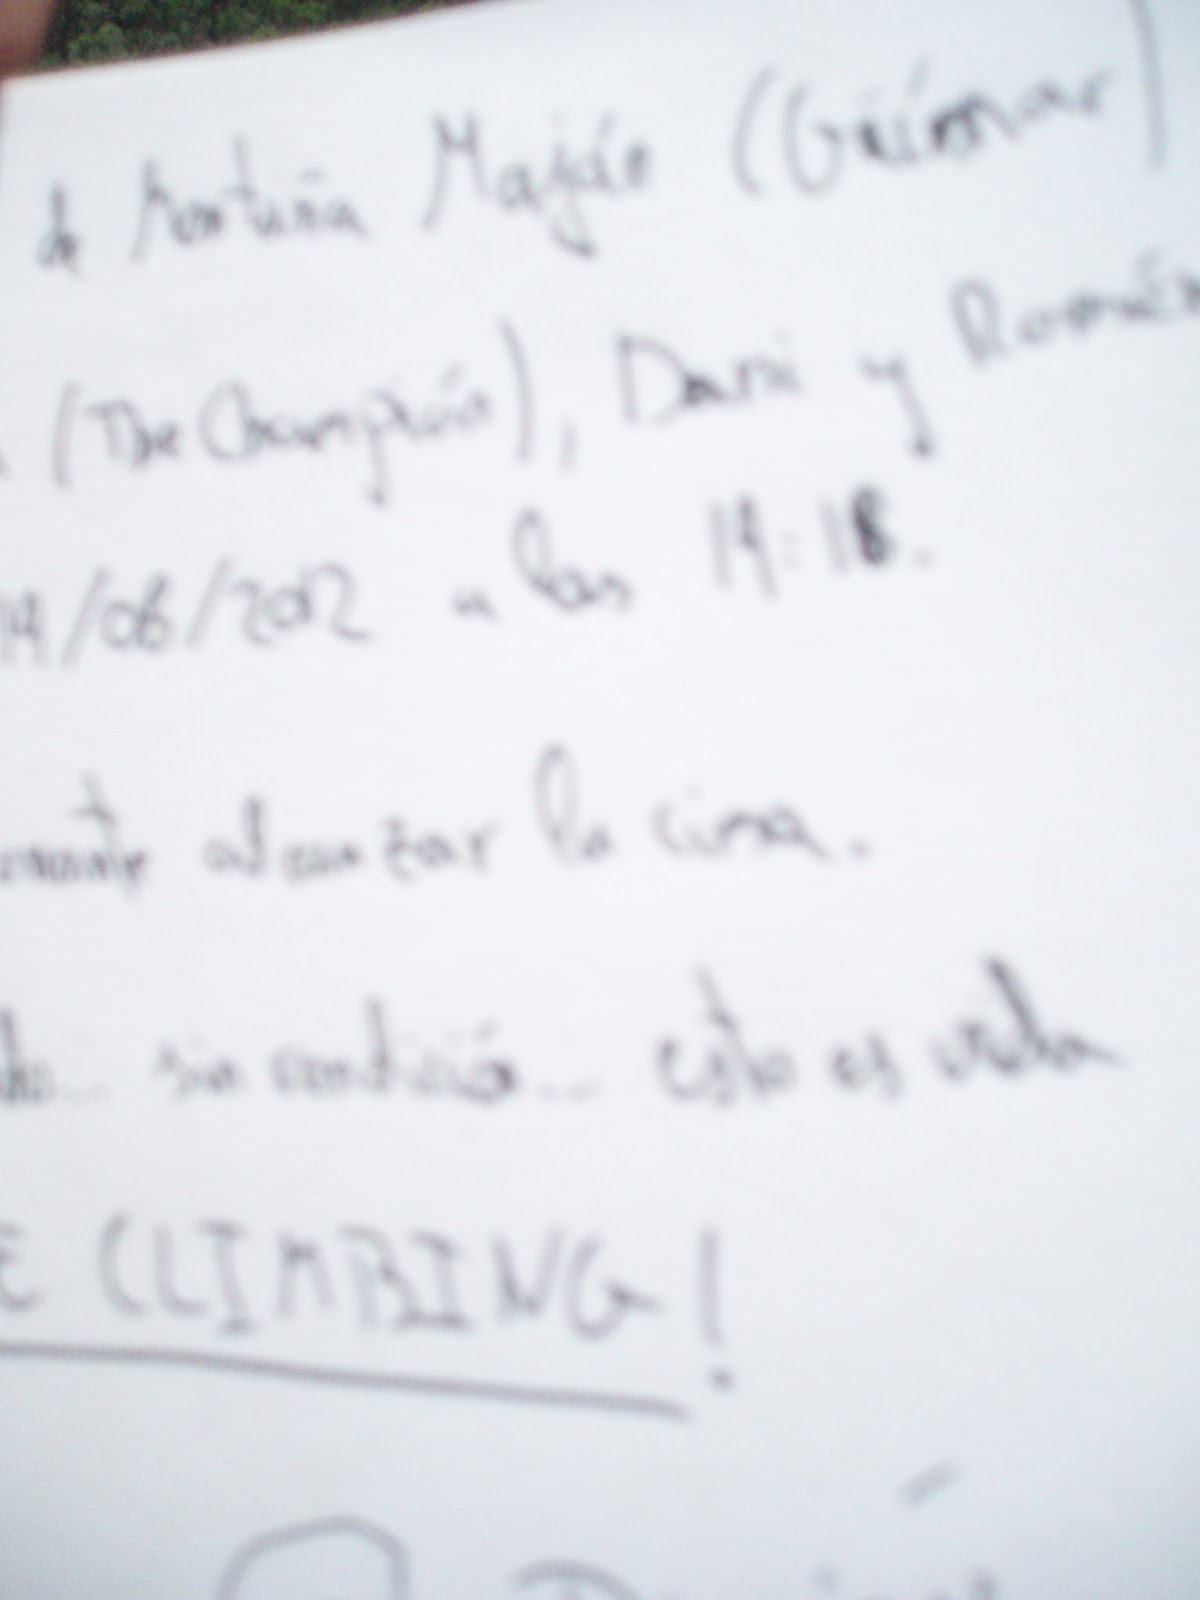 de Montaña Maján (Güímar)
(The Champión), Dani y Román
14/08/2012 a las 14:18.
alcanzar la cima.
sin condición... esto es vida
E CLIMBING!